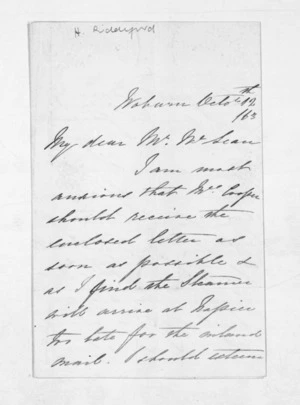 H. Ridderford
Woburn Octo. 12th
/63
My dear Mr. McLean
I am most
anxious that Mrs Cooper
should receive the
enclosed letter as
soon as possible &
as I find the Steamer
will arrive at Napier
too late for the inland
mail. I should esteem